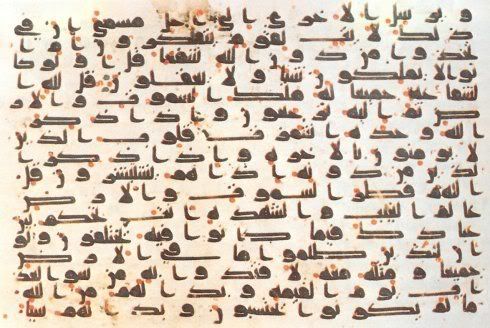 ويرسل الاخرى الى اجل مسمى ان في
ذلك لايت لقوم يتفكرون ام ا
تخذوا من دون الله شفعا قل اولو كا
نوا لا يملكون شيا ولا يعقلون قل لله ا
لشفعة جميعا له ملك السموت والار
ض ثم اليه ترجعون واذا ذكر
الله وحده اشمازت قلوب الذين
لا يومنون بالاخرة واذا ذكر ا
لذين من دونه اذا هم يستبشرون قل
اللهم فطر السموت والارض
علم الغيب والشهدة انت تحكم بين
عبادك في ما كانوا فيه يختلفون ولو
ان للذين ظلموا ما في الارض
جميعا ومثله معه لافتدوا به من سو ا
لعذاب يوم القيمة وبدا لهم من الله
ما لم يكونوا يحتسبون وبدا لهم سيا